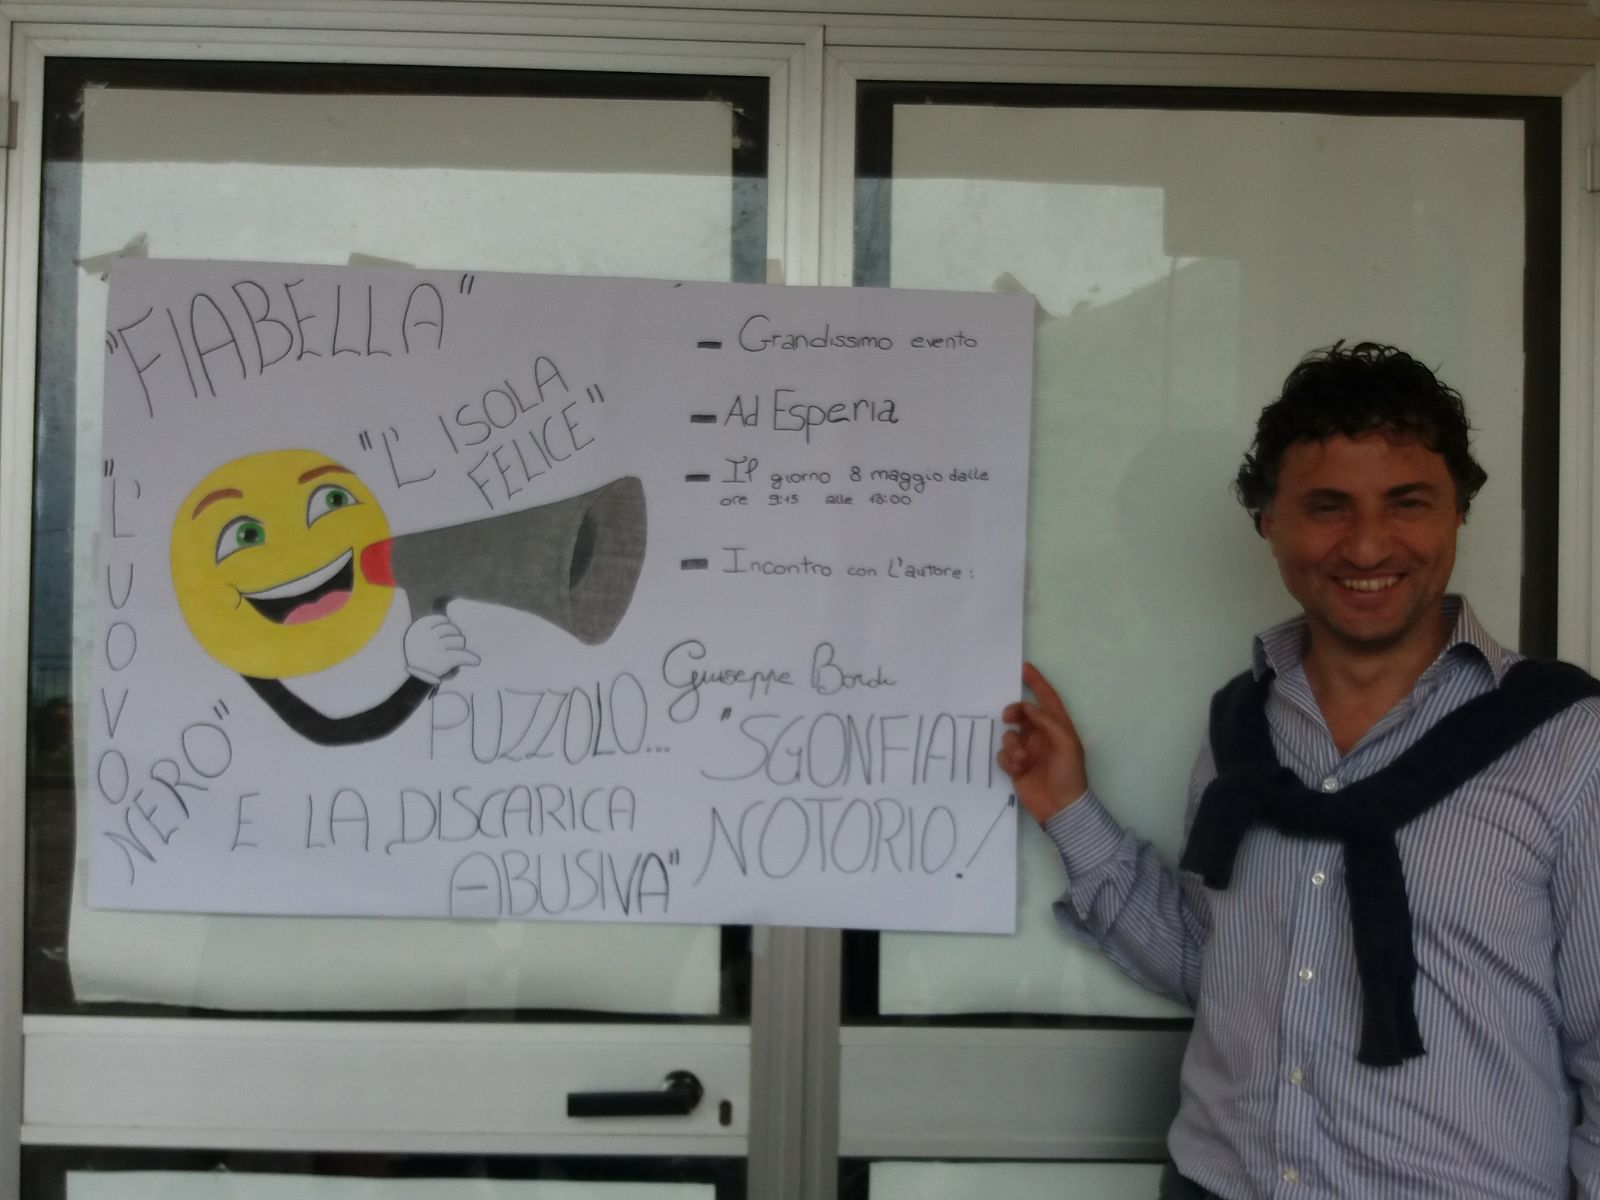 "FIABELLA"
"L'ISOLA
FELICE"
"L'UOVO
NERO"
"PUZZOLO...
E LA DISCARICA
ABUSIVA"
- Grandissimo evento
- Ad Esperia
- Il giorno 8 maggio dalle
ore 9:15 alle 13:00
- Incontro con l'autore:
Giuseppe Bordi
"SGONFIATI
NOTORIO!"